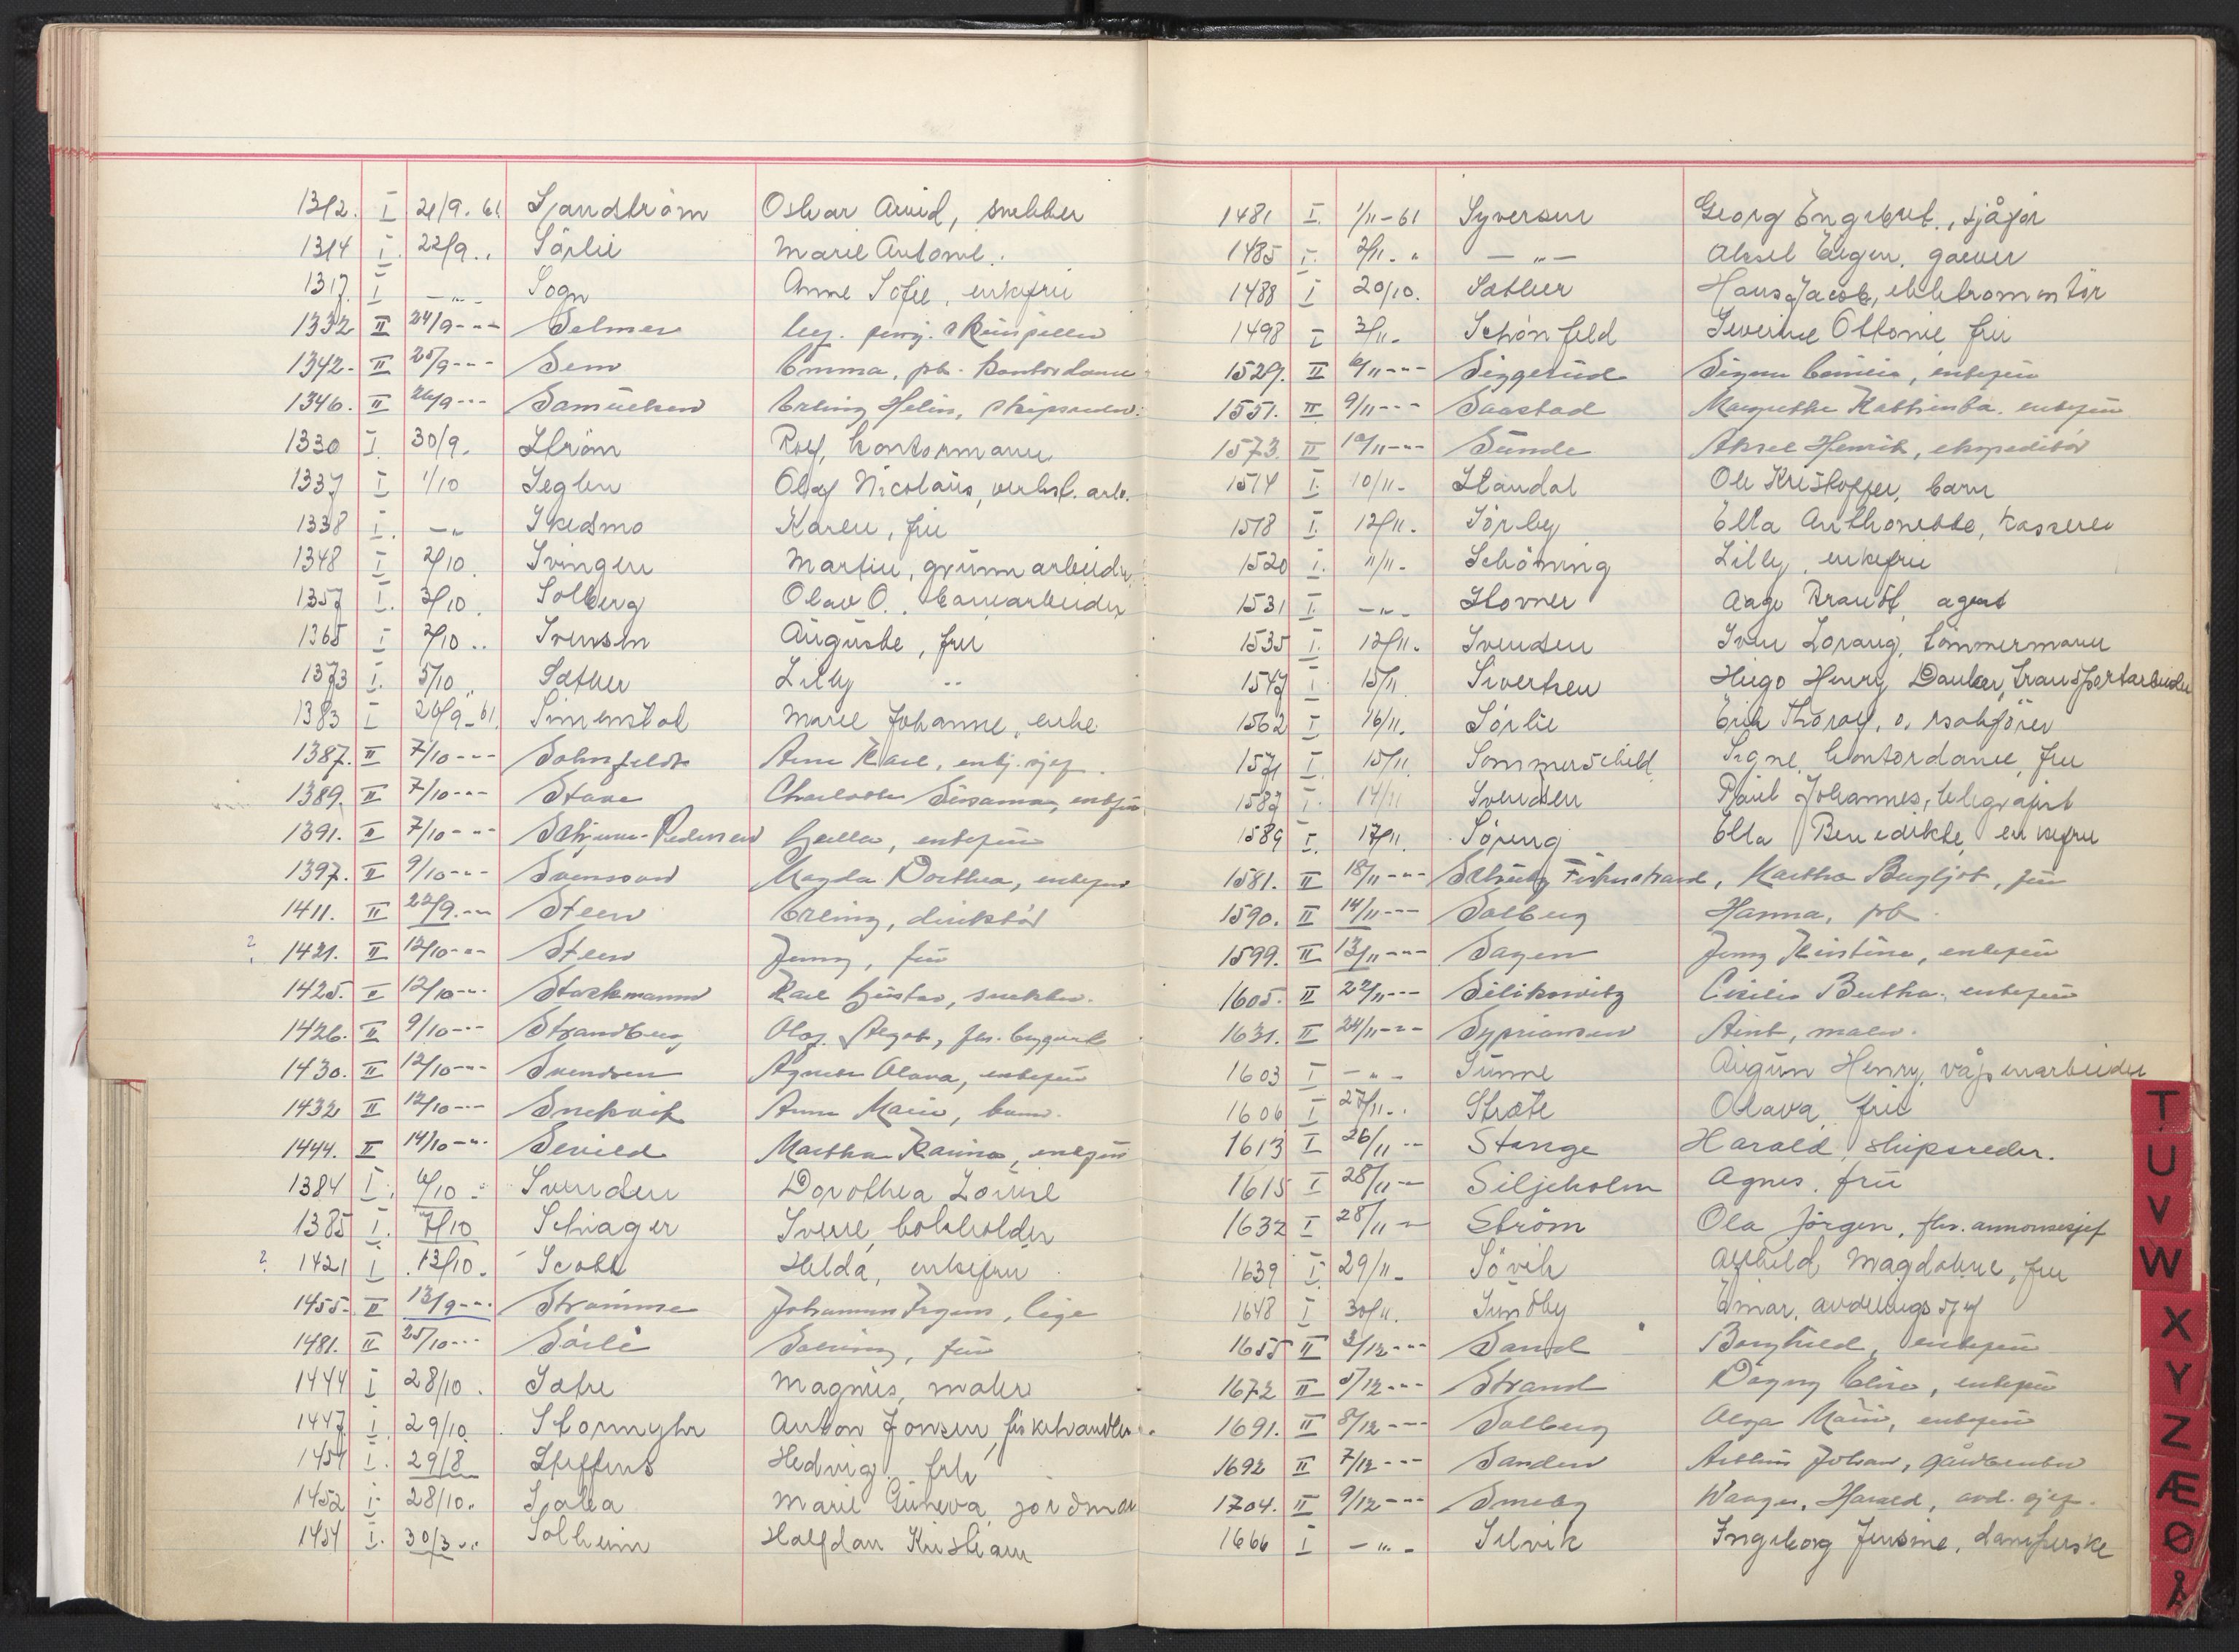 1312. I 21/9. 61. Sjandström Oskar Arvid, snekker
1314 I. 22/9 .. Sörlie Marie Antonie.
1317. I — „ — Sogn Anne Sofie, enkefru
1332 II 24/9 - „ - Selmer skuespiller
1342. II 25/9 - „ - Sem Emma, pb. Kontordame
1346. II 26/9 - „ - Samuelsen Erling Helin, skipsreder.
1330 I. 30/9. Ström Rolf, kontormann
1337 I 1/10 Seglen Olaf Nicolaus, verkst. arb.
1338 I. — „ Skedsmo Karen, fru
1348 I 2/10. Svingen Martin, grunnarbeider
1357 I. 3/10. Solberg Olav O., banearbeider
1365 I 2/10 .. Svensen Auguste, fru
1373 I. 5/10 „ Sæther Lilly „
1383 I 26/9 - 61. Simenstad Marie Johanne, enke
1387. II 7/10 - „ - Sohnfeldt Arne Karl, sjef.
1389. II 7/10 - „ - Stave Charlotte Susanna, enkefru
1391. II 7/10 - „ - Pedersen enkefru
1397. II 9/10 - „ - Svensson Magda Dorthea, enkefru
1411. II 22/9. - „ - Steen Erling, direktör
? 1421. II 12/10 - „ - Steen Jenny, fru
1425. II 12/10 - „ - Stackmann Karl Gustav, snekker.
1426. II 9/10 - „ - Strandberg Olaf
1430. II 12/10 - „ - Svendsen Agnes Olava, enkefru
1432 II 12/10 - „ - Snekvik Anna Marie, barn.
1444. II 14/10 - „ - Sevild Martha Karina, enkefru
1384 I. 6/10 - Svendsen Dorothea Louise
1385 I. 7/10 Schiager Sverre, bokholder
? 1421 I. 13/10. Scott Helda, enkefru
1455. II 13/9 - „ - Strømme Johannes Irgens, lege
1481. II 25/10 - „ - Sörlie Solveig, fru
1444 I 28/10. Sætre Magnus, maler
1447 I. 29/10. Stormyhr Anton Jonsen, fiskehandler
1451 I. 29/8 Steffens Hedvig, frk
1452 I. 28/10. Sjalia Marie Guneva, jordmor
1454 I. 30/3 .. Solheim Halfdan Kristian
1481 I. 1/11 - 61 Syversen Georg Engebret., sjåfør
1485 I. 2/11. „ — „ — Aksel Eigen. garver
1488 I 20/10. Sæther Hans Jacob, elektromontör
1498 I 3/11. Schönfeld Severine Ottonie, fru
1529. II 6/11 - „ - Siggerud Signe, enkefru
1551. II 9/11 - „ - Saastad Margrethe Kathinka. enkefru
1573. II 10/11 - „ - Sunde Aksel Henrik, ekspeditör
1514 I. 10/11. Standal Ole Kristoffer, barn
1518 I. 12/11. Sörby Ella Anthonette, kasserer
1520 I. 11/11. Schöning Lilly, enkefru
1531 I. — „ — Stovner Aage Brandt, agent
1535 I. 12/11. Svendsen Iver Lorang, tömmermann
1547 I. 15/11 Sivertsen Hugo Henry Danker, transportarbeider
1562 I 16/11. Sörlie Erik Thoralf, o. rsakförer
1571 I. 15/11. Sommerschield Signe, kontordame, fru
1582 I. 14/11 Svendsen Paul Johannes, telegrafist
1589 I. 17/11. Söreng Ella Benedikte, enkefru
1581. II 18/11 - „ - Fiskerstrand, Martha Bergljot, fru
1590. II 14/11 - „ - Solberg Hanna, pb.
1599. II 13/11 - „ - Sagen Jenny Kristine, enkefru
1605. II 22/11 - „ - Selikowitz Cecilie Bertha, enkefru
1631. II 24/11 - „ - Sypriansen Arnt, maler.
1603 I — „ — Sunne Augun Henry, våpenarbeider
1606 I 27/11 .. Stræte Olava, fru
1613 I 26/11 - „ Stange Harald, skipsreder.
1615 I 28/11 - „ Siljeholm Agnes, fru
1632 I 28/11 - „ Ström Ola Jörgen, fhv. annonsesjef
1639 I 29/11. Sövik Alfhild Magdalene, fru
1648 I 30/11. Sundby Einar, avdelingssjef
1655 II 2/12 - „ - Sand Borghild, enkefru
1672 II 5/12 - „ - Strand Dagny Elise, enkefru
1691. II 8/12 - „ - Solberg Olga Marie, enkefru
1692 II 7/12 - „ - Sanden Johan, gårdbruker
1704. II 9/12 - „ - Smeby Waager, Harald, avd. sjef.
1666 I — „ — Selvik Ingeborg Jensine, damfrisørske
T
U
V
W
X
Y
Z
Æ
Ø
Å